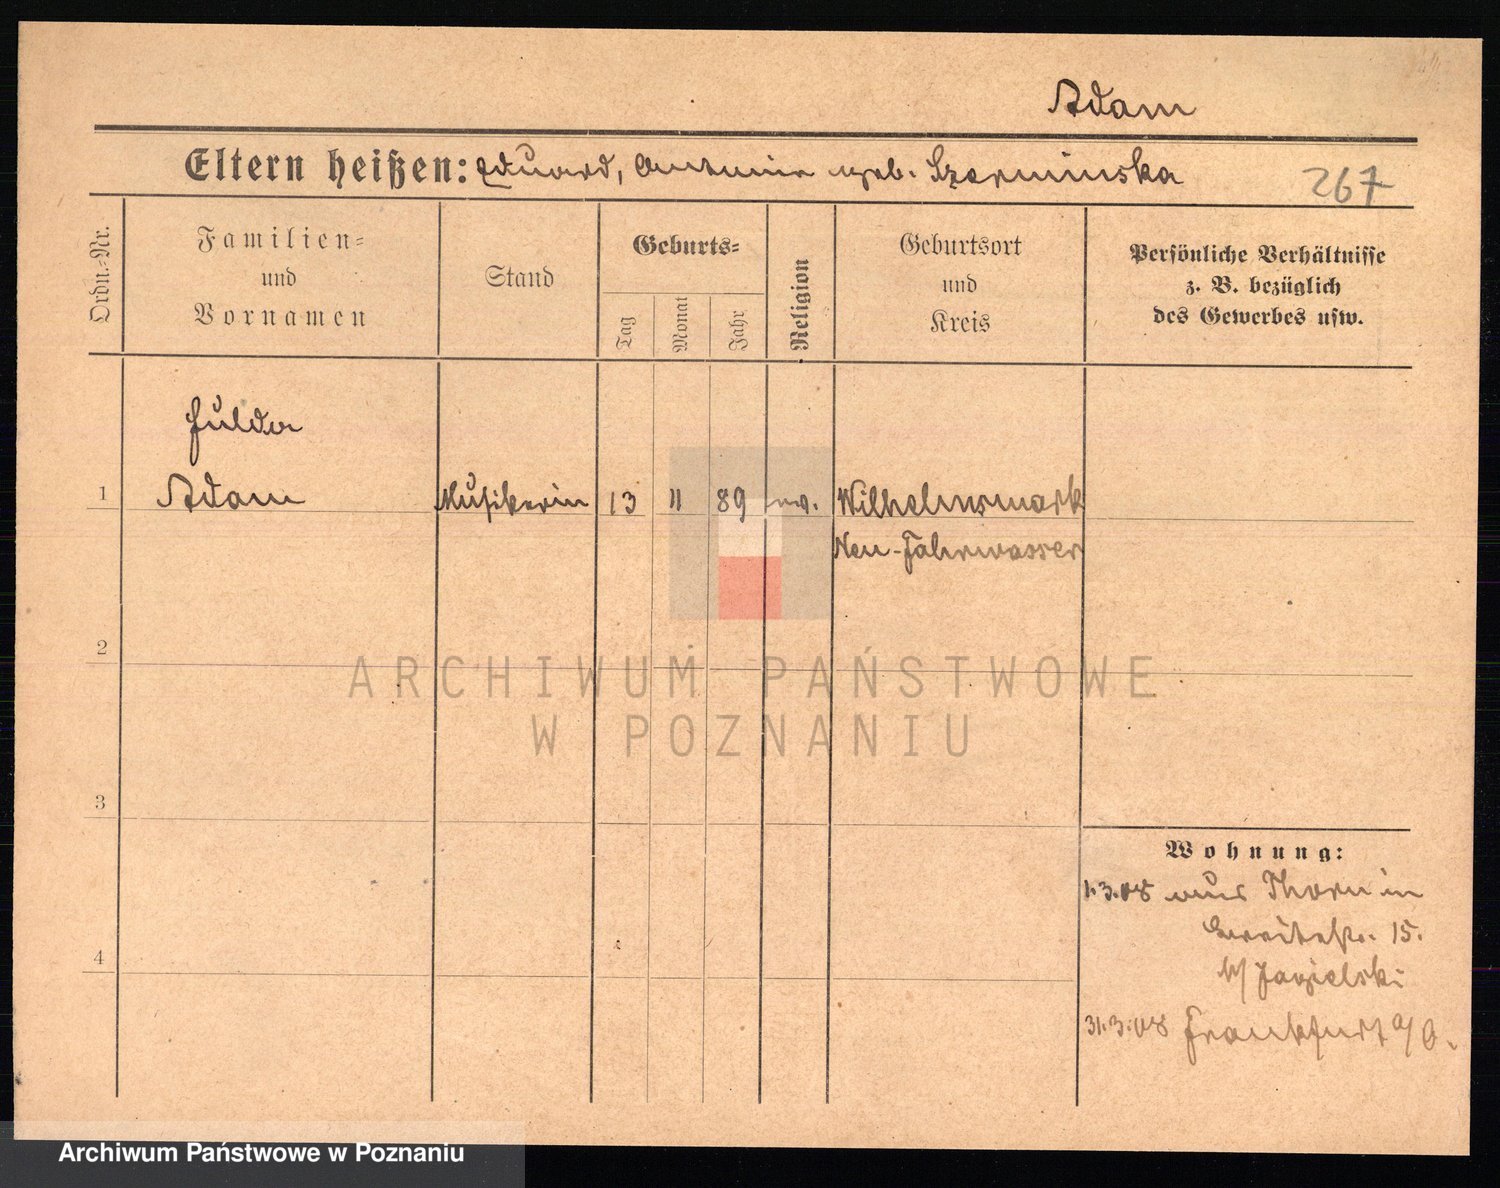 Adam
Eltern heißen: Eduard, Antonie geb. Szerminska
267
Ordn.-Nr.
Familien-
und
Vornamen
Stand
Geburts-
Tag
Monat
Jahr
Religion
Geburtsort
und
Kreis
Persönliche Verhältnisse
z. B. bezüglich
des Gewerbes usw.
Hulda
1 Adam Musikerin 13 11 89 ev. Wilhelmsmark
Neu-Fahrwasser
2
ARCHIWUM PAŃSTWOWE
W POZNANIU
3
Wohnung:
1.3.08 aus Thorn in
Breitestr. 15.
b/ Jagielski
4
31.3.08 Frankfurt a/O.
Archiwum Państwowe w Poznaniu